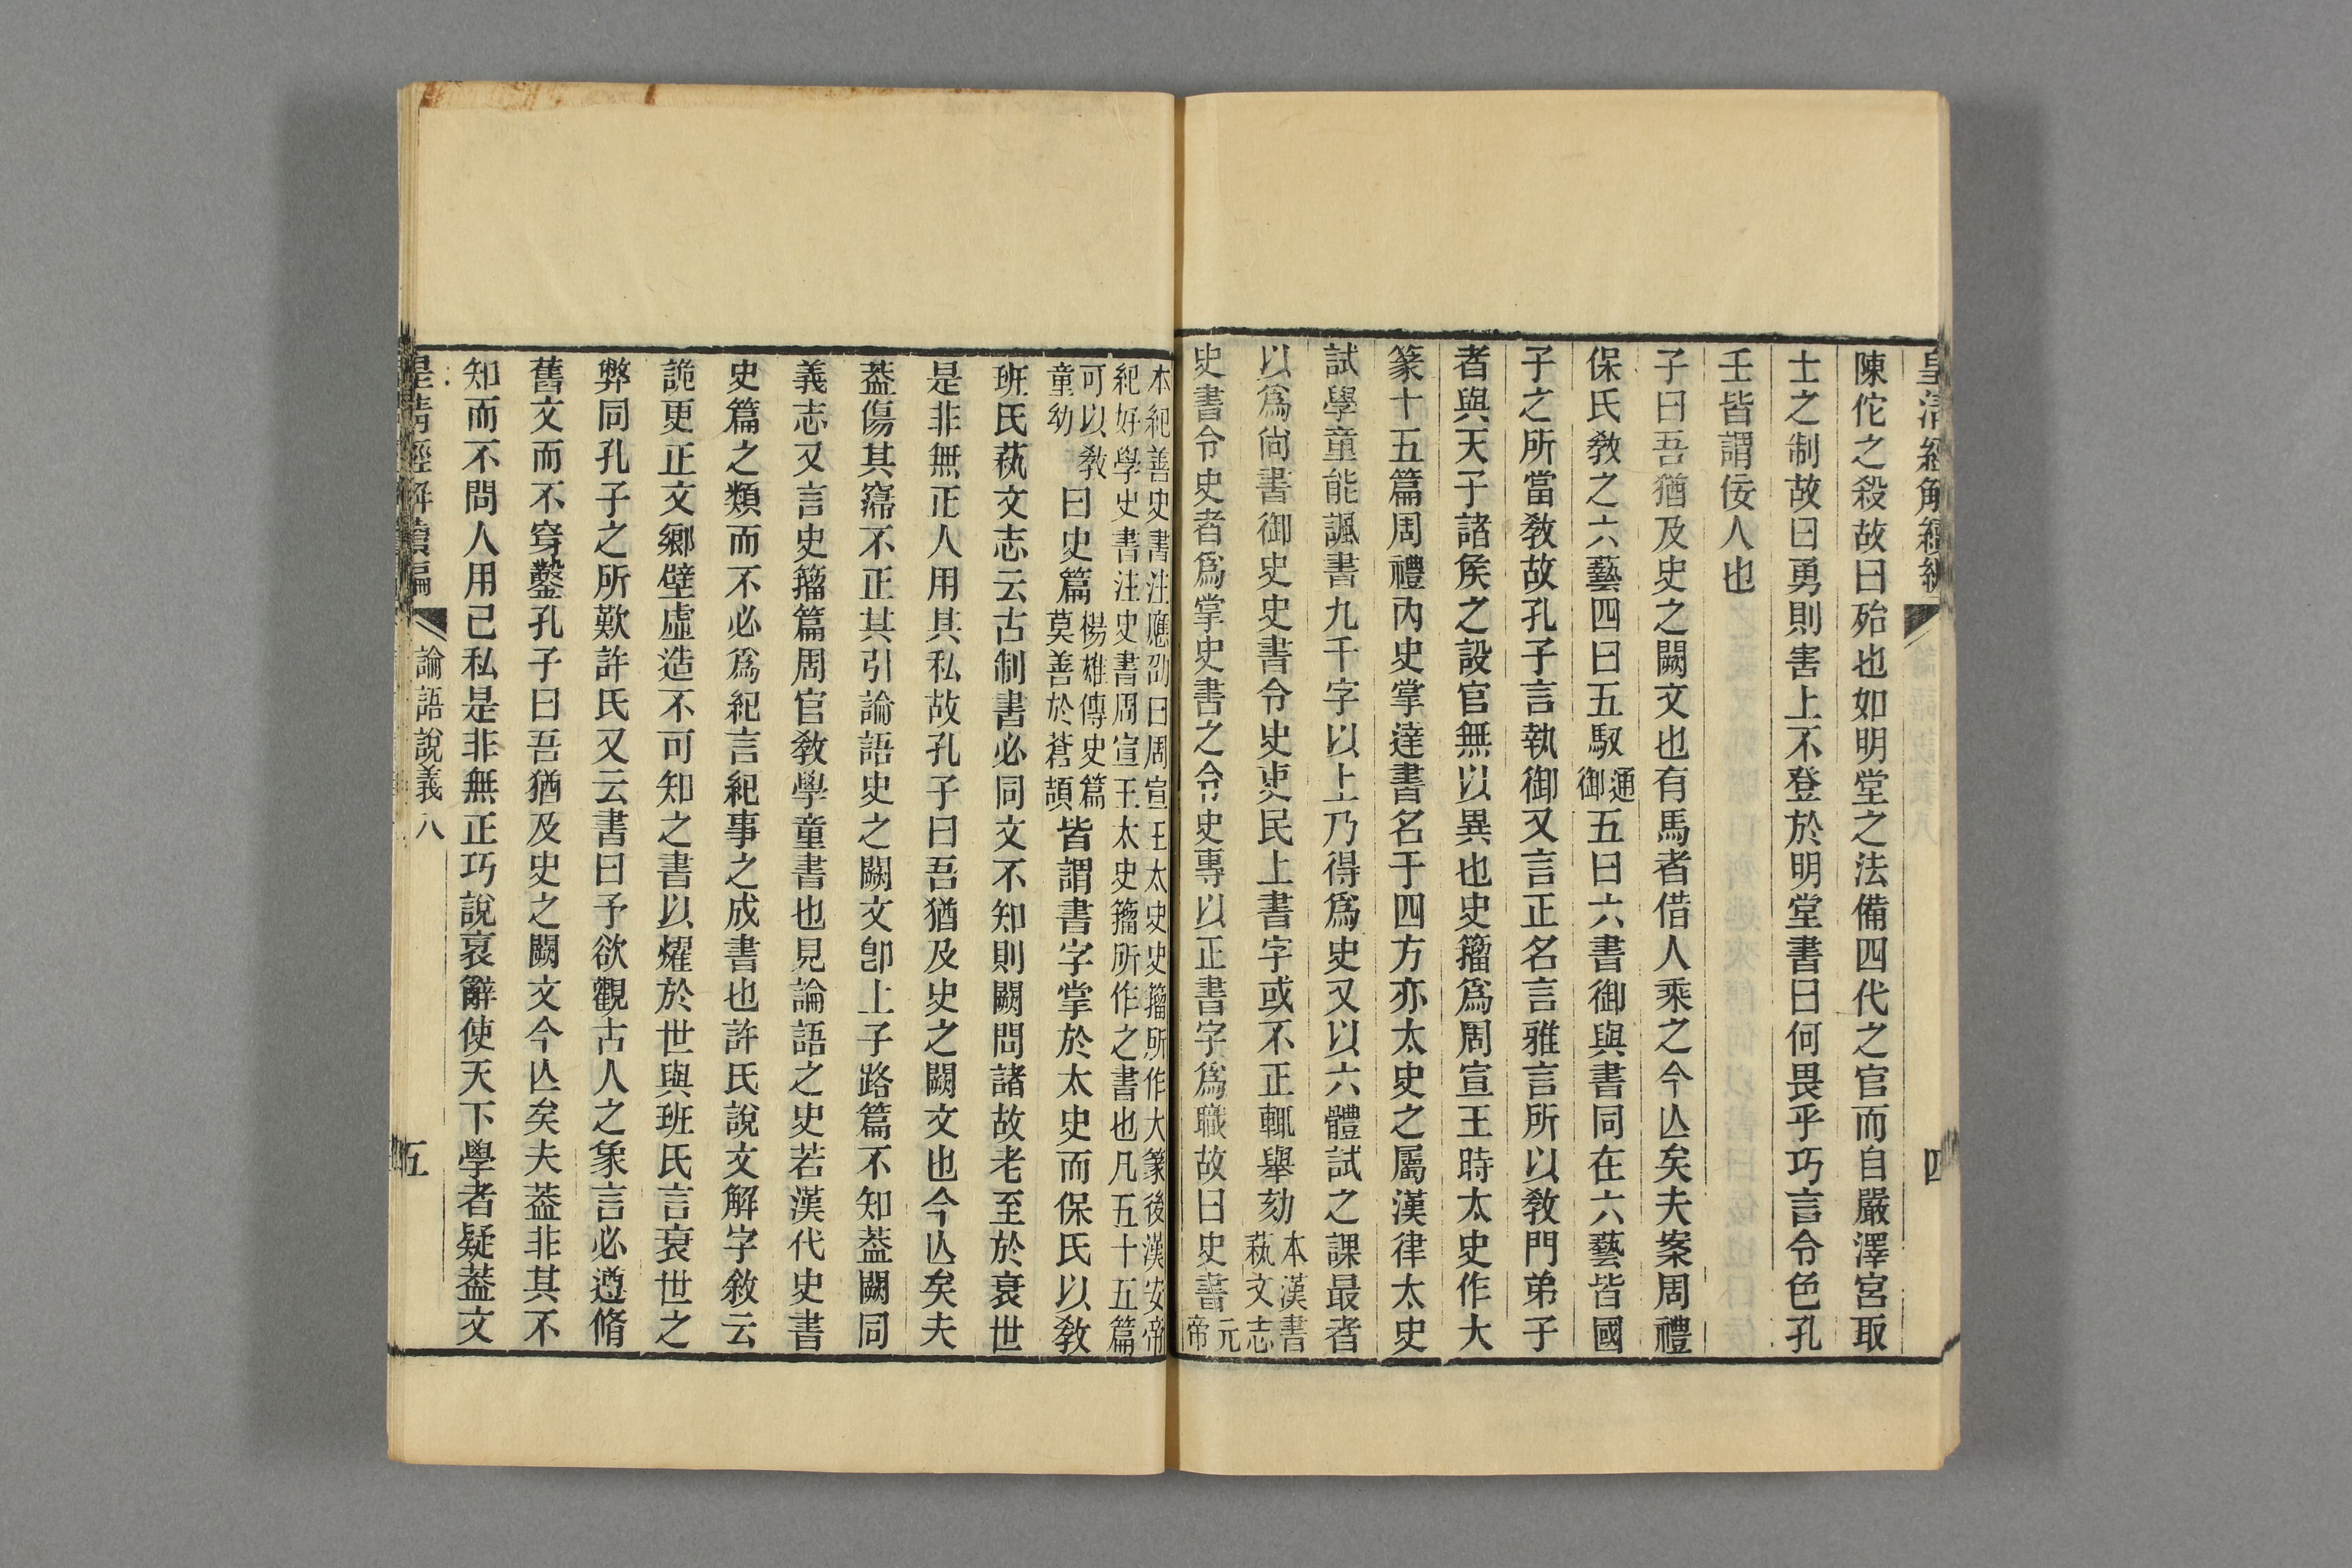 皇清經解續編
四
陳佗之殺故曰殆也如明堂之法備四代之官而自嚴澤宮取
士之制故曰勇則害上不登於明堂書曰何畏乎巧言令色孔
壬皆謂佞人也
子曰吾猶及史之闕文也有馬者借人乘之今亾矣夫案周禮
保氏敎之六藝四曰五馭通御五曰六書御與書同在六藝皆國
子之所當敎故孔子言執御又言正名言雅言所以敎門弟子
者與天子諸侯之設官無以異也史籀爲周宣王時太史作大
篆十五篇周禮內史掌達書名于四方亦太史之屬漢律太史
試學童能諷書九千字以上乃得爲史又以六體試之課最者
以爲尙書御史史書令史吏民上書字或不正輒舉劾本漢書
蓺文志
史書令史者爲掌史書之令史專以正書字爲職故曰史書元
帝
本紀善史書注應劭曰周宣王太史史籀所作大篆後漢安帝
紀好學史書注史書周宣王太史籀所作之書也凡五十五篇
可以敎
童幼曰史篇楊雄傳史篇
莫善於蒼頡皆謂書字掌於太史而保氏以敎
班氏蓺文志云古制書必同文不知則闕問諸故老至於衰世
是非無正人用其私故孔子曰吾猶及史之闕文也今亾矣夫
葢傷其寖不正其引論語史之闕文卽上子路篇不知葢闕同
義志又言史籀篇周官敎學童書也見論語之史若漢代史書
史篇之類而不必爲紀言紀事之成書也許氏說文解字敘云
詭更正文鄉壁虛造不可知之書以燿於世與班氏言衰世之
弊同孔子之所歎許氏又云書曰予欲觀古人之象言必遵脩
舊文而不穿鑿孔子曰吾猶及史之闕文今亾矣夫葢非其不
知而不問人用己私是非無正巧說衺辭使天下學者疑葢文
皇淸經解續編
論語說義八
五